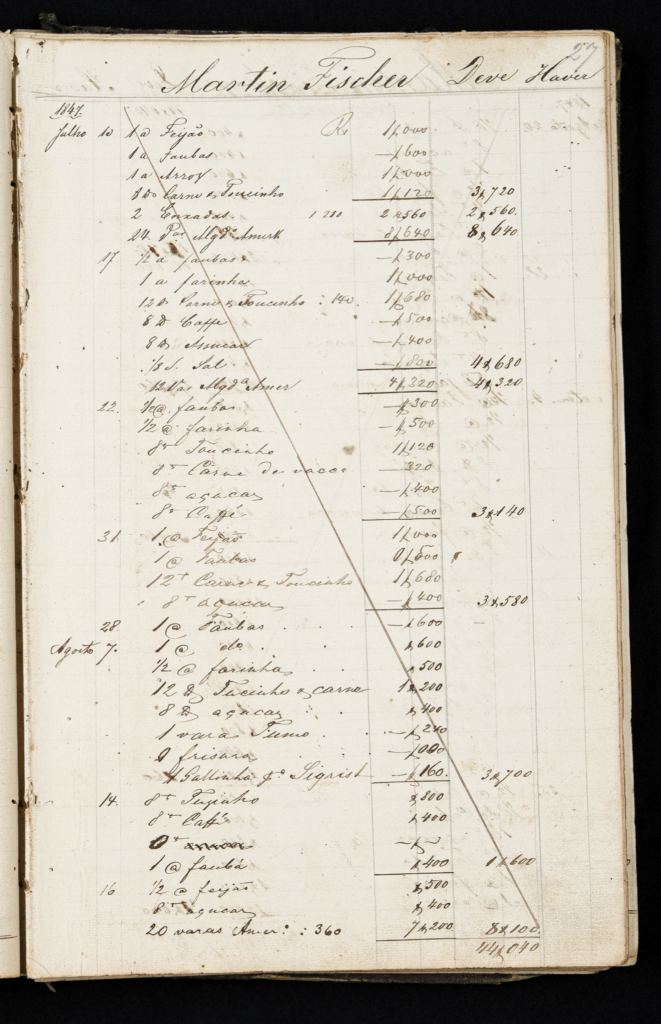 27
Martin Fischer Deve Haver
1847
Julho 10 1 @ Feijão Rs 1$000
1 @ Faubas —$600
1 @ Arroz 1$000
8 Carne & Toucinho 1$120 3$720
2 Enxadas 1280 2$560 2$560
24 Mgdª Amerk 8$640 8$640
17 ½ @ faubas —$300
1 @ farinha 1$000
12 Carne & Toucinho : 140. 1$680
8 Caffe —$500
8 Assucar —$400
Sal —$800 4$680
12 Mgdª Amer 4$320 4$320
22. ½ @ faubas —$300
½ @ farinha —$500
8 Toucinho 1$120
8 Carne de vacca 320
8 açucar —$400
8 Caffé —$500 3$140
31. 1 @ Feijão 1$000
1 @ Faubas 0$500
12 Carne & Toucinho 1$680
8 açucar —$400 3$580
28. 1 @ Faubas . . . —$600
Agosto 7. 1 @ do . $600
½ @ farinha . $500
12 Tucinho & carne 1$200
8 açucar . . $400
1 vara Fumo . . —$240
frisara —$000
1 Gallinha pª Sigrist —$160. 3$700
14. 8 $800
8 Caffé $400
—$—
1 @ faubá $400 1$600
16 ½ @ feijão $500
8 açucar $400
20 varas Amer: : 360 7$200 8$100
44$040